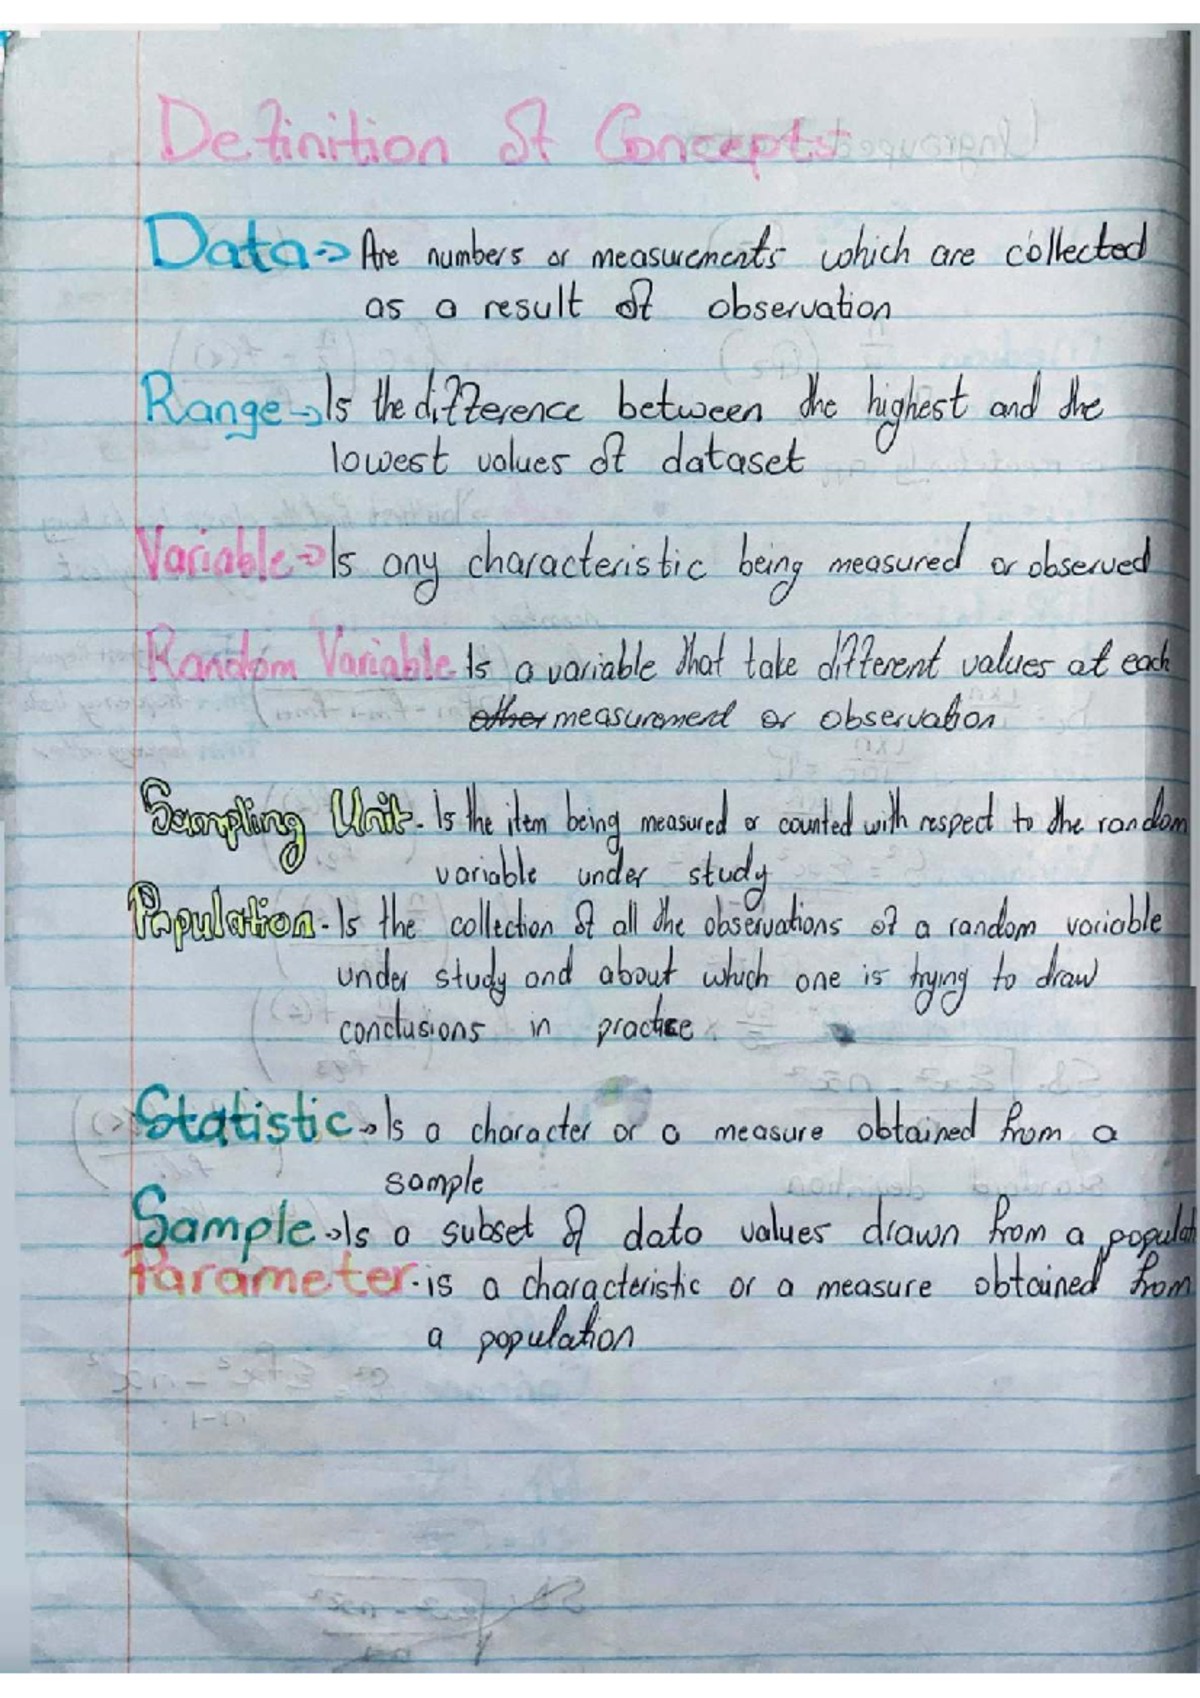 Definition of Concepts
Data → Are numbers or measurements which are collected
as a result of observation
Range → Is the difference between the highest and the
lowest values of dataset
Variable → Is any characteristic being measured or observed
Random Variable Is a variable that take different values at each
other measurement or observation
Sampling Unit - Is the item being measured or counted with respect to the random
variable under study
Population - Is the collection of all the observations of a random variable
under study and about which one is trying to draw
conclusions in practice
Statistic → Is a character or a measure obtained from a
sample
Sample → Is a subset of data values drawn from a populati
Parameter - is a characteristic or a measure obtained from
a population